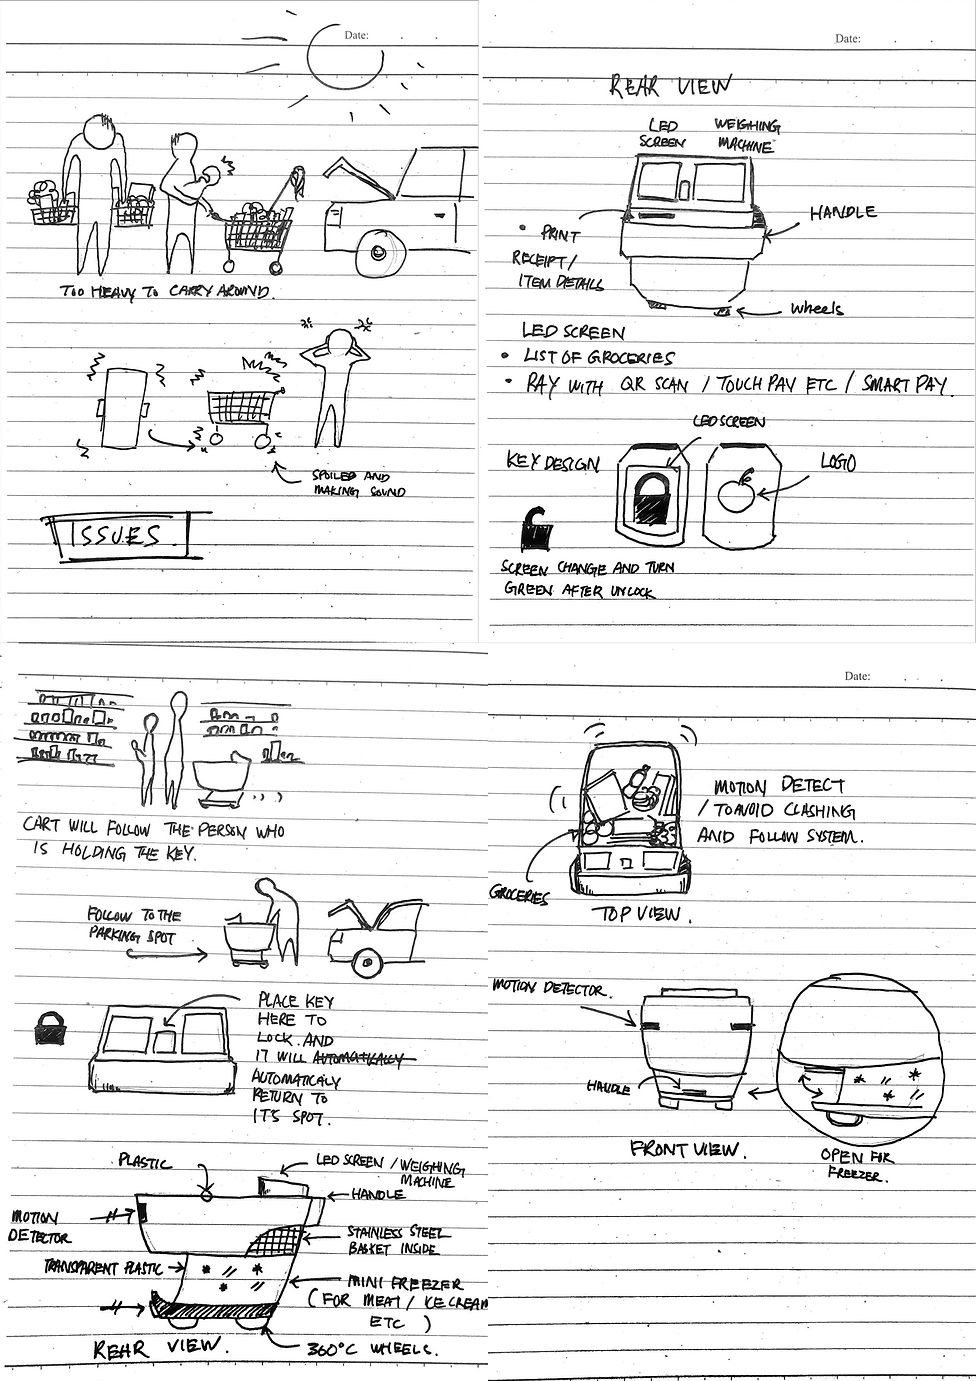 Date:
TOO HEAVY TO CARRY AROUND.
SPOILED AND
MAKING SOUND
ISSUES
Date:
REAR VIEW
LED
SCREEN
WEIGHING
MACHINE
HANDLE
• PRINT
RECEIPT/
ITEM DETAILS
Wheels
LED SCREEN
• LIST OF GROCERIES
• PAY WITH QR SCAN / TOUCH PAY ETC / SMART PAY.
LED SCREEN
KEY DESIGN
LOGO
SCREEN CHANGE AND TURN
GREEN AFTER UNLOCK
CART WILL FOLLOW THE PERSON WHO
IS HOLDING THE KEY.
FOLLOW TO THE
PARKING SPOT
PLACE KEY
HERE TO
LOCK AND
IT WILL AUTOMATICALLY
AUTOMATICALY
RETURN TO
IT'S SPOT.
PLASTIC
LED SCREEN / WEIGHING
MACHINE
HANDLE
MOTION
DETECTOR
STAINLESS STEEL
BASKET INSIDE
TRANSPARENT PLASTIC
MINI FREEZER
(FOR MEAT / ICE CREAM
ETC )
REAR VIEW.
360°C WHEELS.
Date:
MOTION DETECT
/ TO AVOID CLASHING
AND FOLLOW SYSTEM.
GROCERIES
TOP VIEW.
MOTION DETECTOR.
HANDLE
FRONT VIEW.
OPEN FOR
FREEZER.